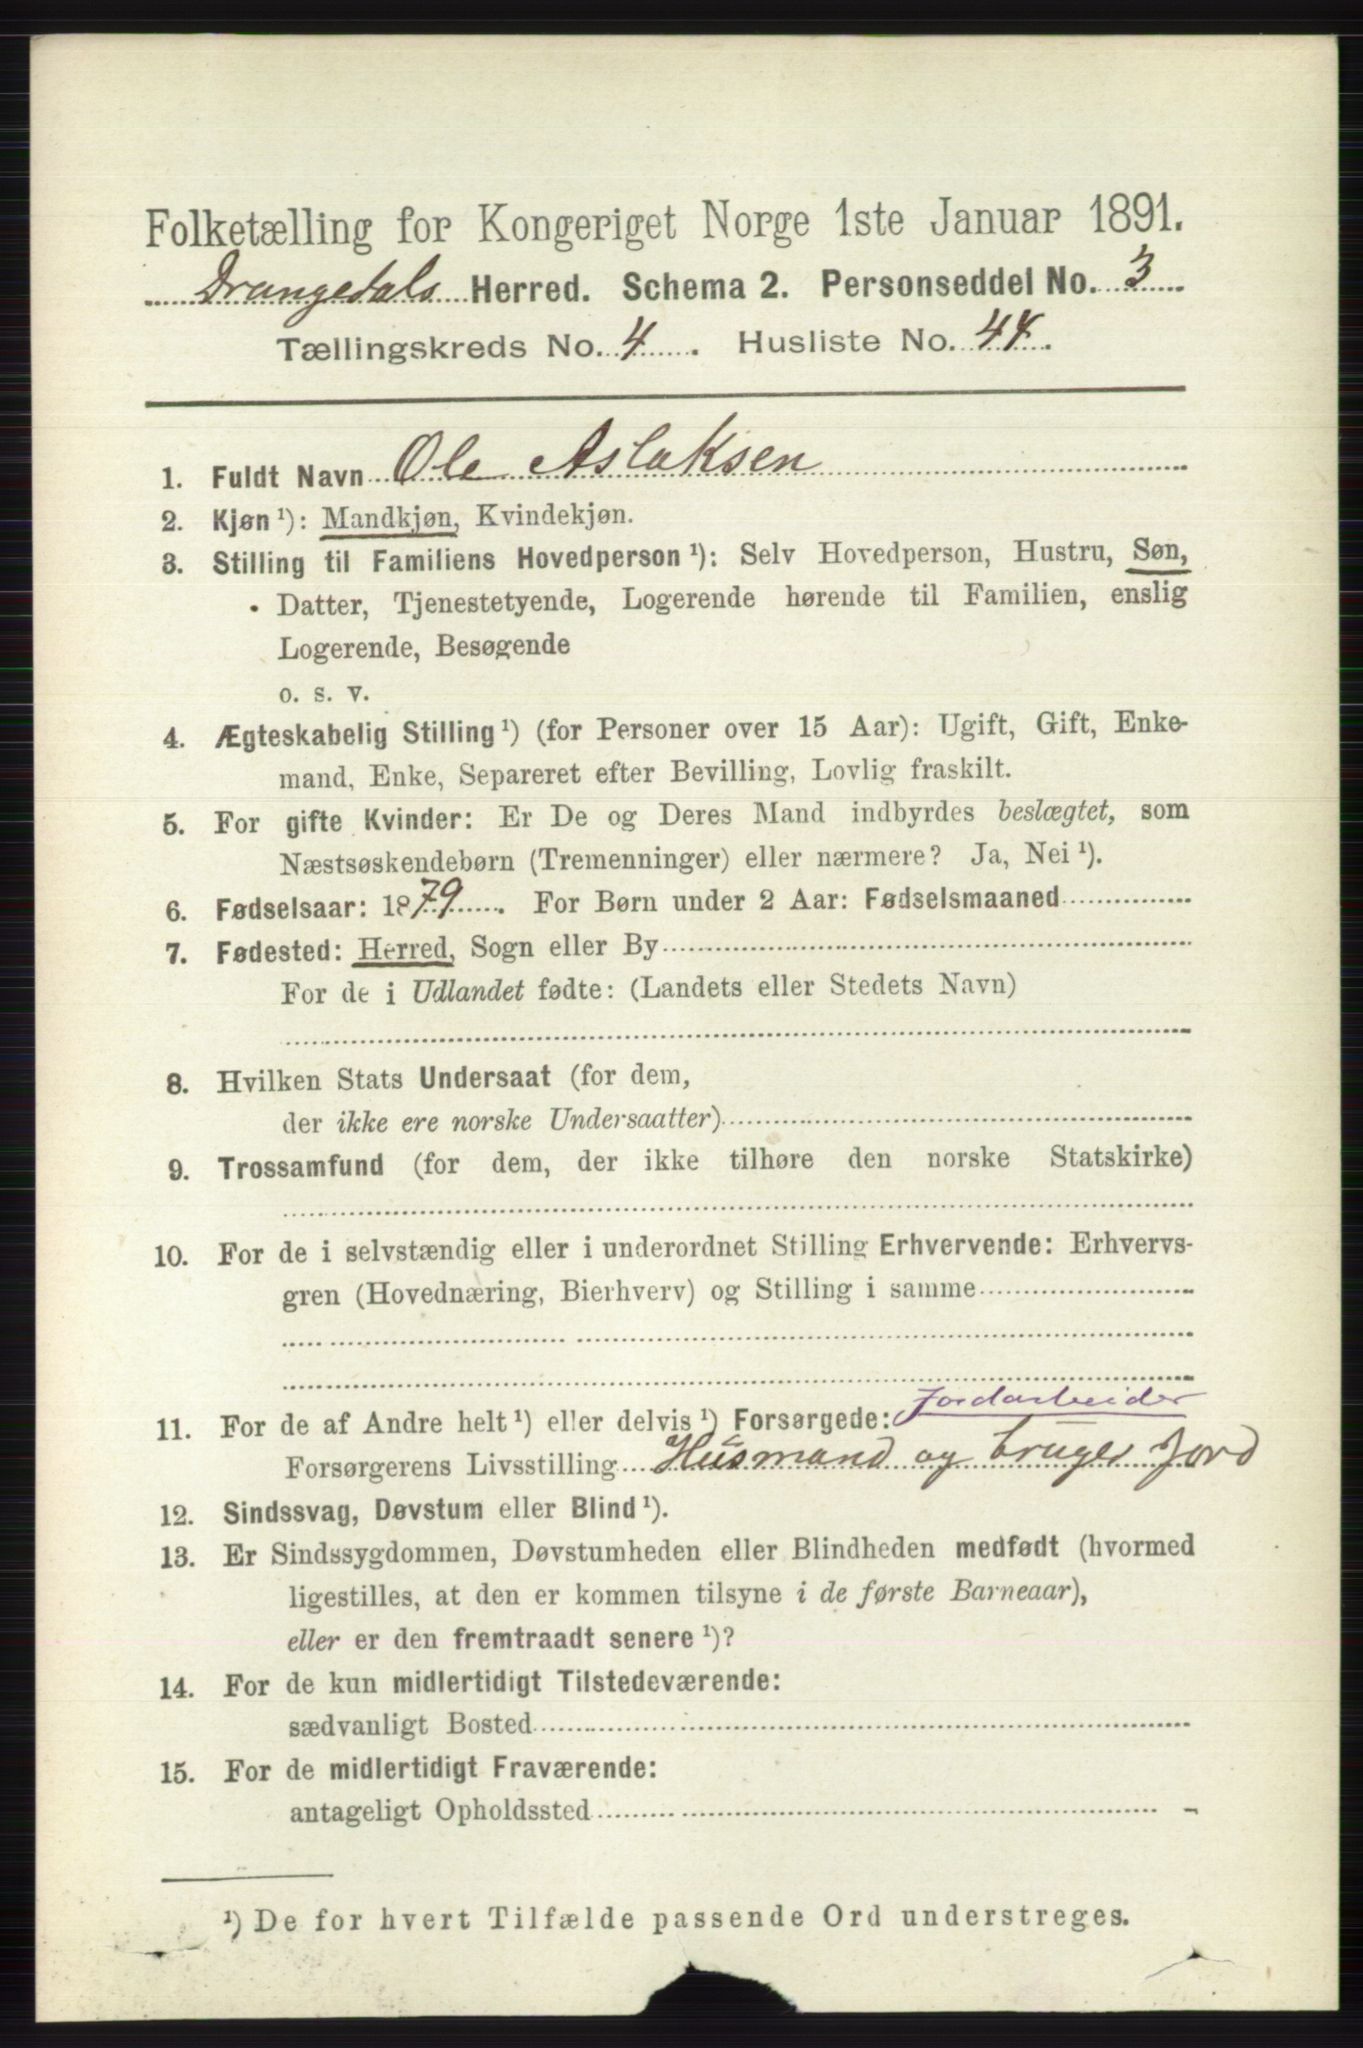 Folketælling for Kongeriget Norge 1ste Januar 1891.
Drangedals Herred. Schema 2. Personseddel No. 3
Tællingskreds No. 4. Husliste No. 44.
1. Fuldt Navn Ole Aslaksen
2. Kjøn ¹): Mandkjøn, Kvindekjøn.
3. Stilling til Familiens Hovedperson ¹): Selv Hovedperson, Hustru, Søn,
Datter, Tjenestetyende, Logerende hørende til Familien, enslig
Logerende, Besøgende
o. s. v.
4. Ægteskabelig Stilling ¹) (for Personer over 15 Aar): Ugift, Gift, Enke-
mand, Enke, Separeret efter Bevilling, Lovlig fraskilt.
5. For gifte Kvinder: Er De og Deres Mand indbyrdes beslægtet, som
Næstsøskendebørn (Tremenninger) eller nærmere? Ja, Nei ¹).
6. Fødselsaar: 1879. For Børn under 2 Aar: Fødselsmaaned
7. Fødested: Herred, Sogn eller By
For de i Udlandet fødte: (Landets eller Stedets Navn)
8. Hvilken Stats Undersaat (for dem,
der ikke ere norske Undersaatter)
9. Trossamfund (for dem, der ikke tilhøre den norske Statskirke)
10. For de i selvstændig eller i underordnet Stilling Erhvervende: Erhvervs-
gren (Hovednæring, Bierhverv) og Stilling i samme
11. For de af Andre helt ¹) eller delvis ¹) Forsørgede: Jordarbeider
Forsørgerens Livsstilling Husmand og bruger Jord
12. Sindssvag, Døvstum eller Blind ¹).
13. Er Sindssygdommen, Døvstumheden eller Blindheden medfødt (hvormed
ligestilles, at den er kommen tilsyne i de første Barneaar),
eller er den fremtraadt senere ¹)?
14. For de kun midlertidigt Tilstedeværende:
sædvanligt Bosted
15. For de midlertidigt Fraværende:
antageligt Opholdssted
¹) De for hvert Tilfælde passende Ord understreges.